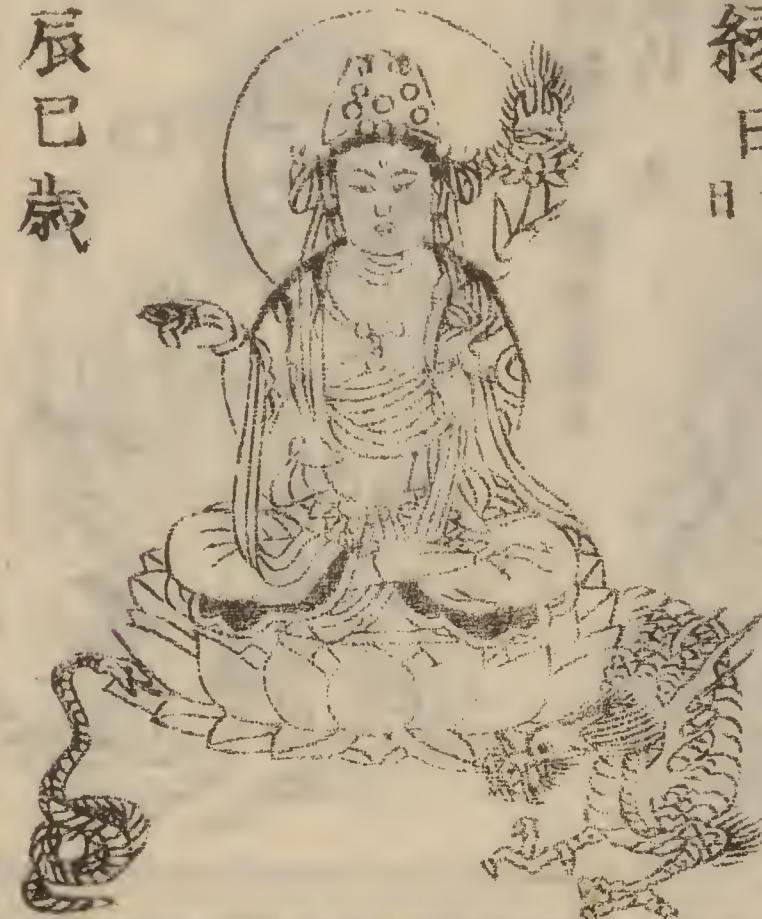 縁日
日
辰巳歳